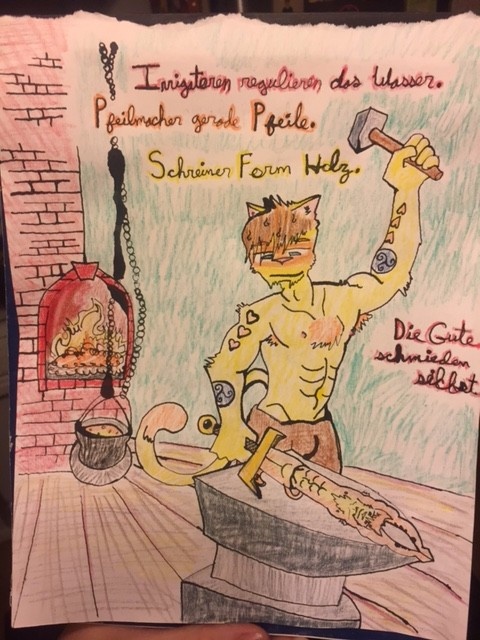 Irrigateren regulieren das Wasser.
Pfeilmacher gerade Pfeile.
Schreiner Form Holz.
Die Gute
schmieden
selbst